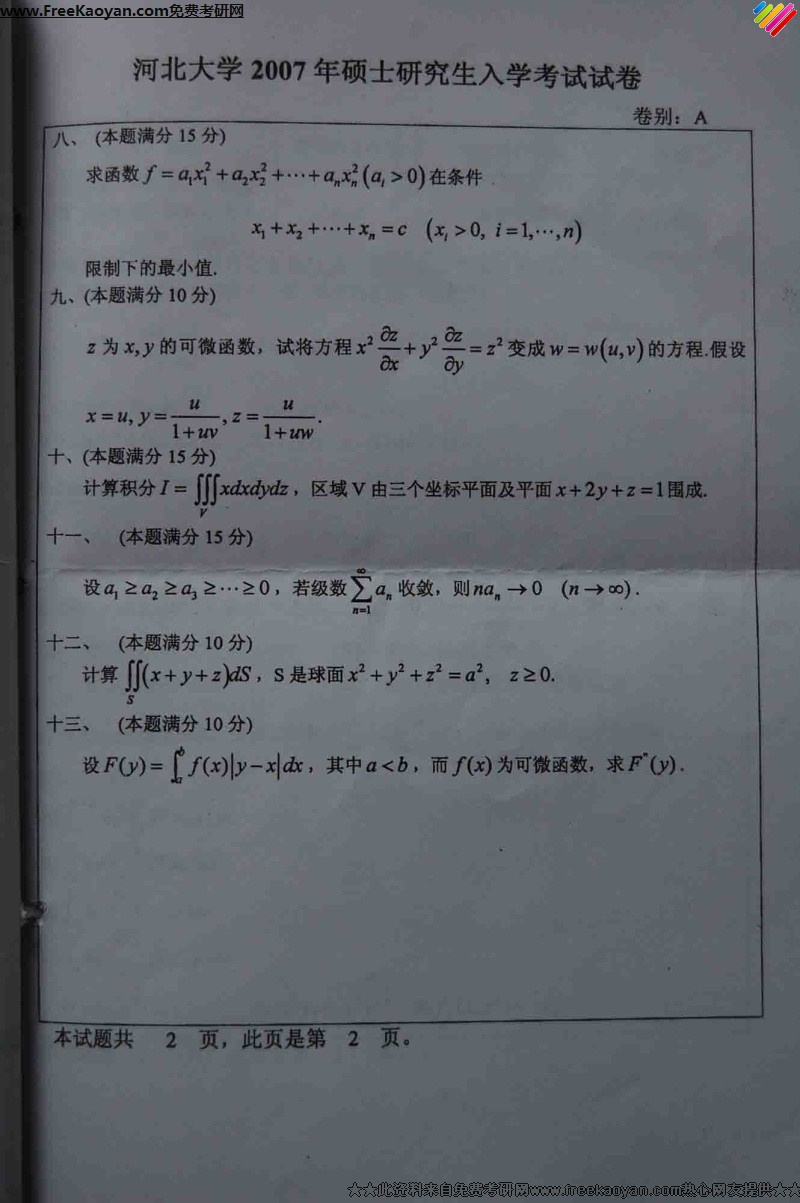 www.FreeKaoyan.com免费考研网
河北大学 2007 年硕士研究生入学考试试卷
卷别：A
八、 (本题满分 15 分)
求函数 f = a₁x₁² + a₂x₂² + ⋯ + aₙxₙ² (aᵢ > 0) 在条件
x₁ + x₂ + ⋯ + xₙ = c (xᵢ > 0, i = 1, ⋯, n)
限制下的最小值.
九、(本题满分 10 分)
z 为 x, y 的可微函数，试将方程 x² ∂z/∂x + y² ∂z/∂y = z² 变成 w = w(u, v) 的方程.假设
x = u, y = u/(1+uv), z = u/(1+uw).
十、(本题满分 15 分)
计算积分 I = ∭_V xdxdydz，区域 V 由三个坐标平面及平面 x + 2y + z = 1 围成.
十一、 (本题满分 15 分)
设 a₁ ≥ a₂ ≥ a₃ ≥ ⋯ ≥ 0，若级数 ∑_{n=1}^{∞} aₙ 收敛，则 naₙ → 0 (n → ∞).
十二、 (本题满分 10 分)
计算 ∬_S (x + y + z)dS，S 是球面 x² + y² + z² = a², z ≥ 0.
十三、 (本题满分 10 分)
设 F(y) = ∫_a^b f(x)|y − x|dx，其中 a < b，而 f(x) 为可微函数，求 F″(y).
本试题共 2 页，此页是第 2 页。
☆☆此资料来自免费考研网www.freekaoyan.com热心网友提供☆☆